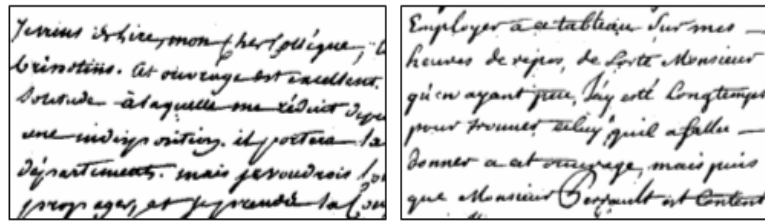 Je viens de lire, mon cher Collégue,
cet ouvrage est excellent.
Solitude à laquelle me réduit
une indisposition. il portera la
départements. mais je voudrois
propager, et je prendé la
Employer a ce tableau Sur mes
heures de repos, de Sorte Monsieur
qu'en ayant peu, J'ay esté Longtemps
pour trouver celuy qu'il a fallu
donner a cet ouvrage, mais puis
que Monsieur Perrault est Content